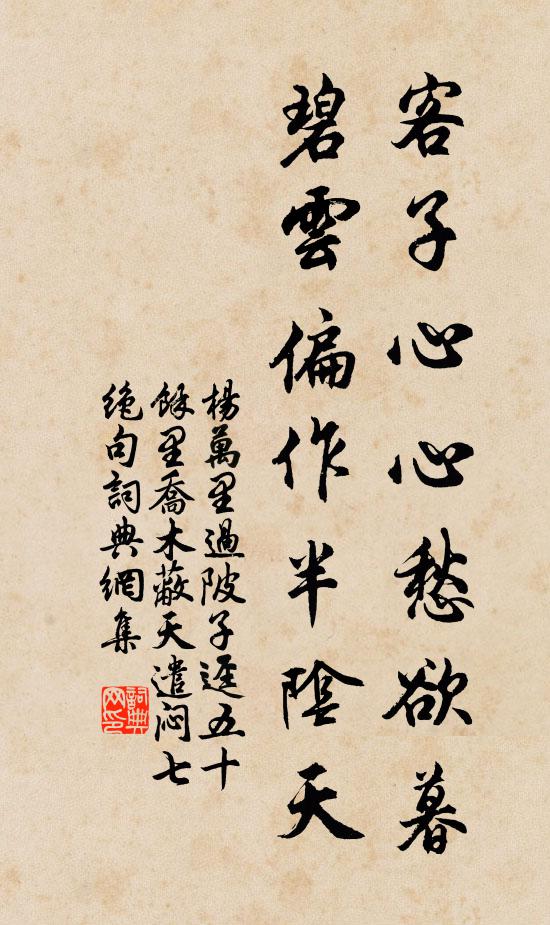 客子心心愁欲暮
碧雲偏作半陰天
楊萬里過陂子迳五十
餘里喬木蔽天遣闷七
绝句詞典網集
詞典网印